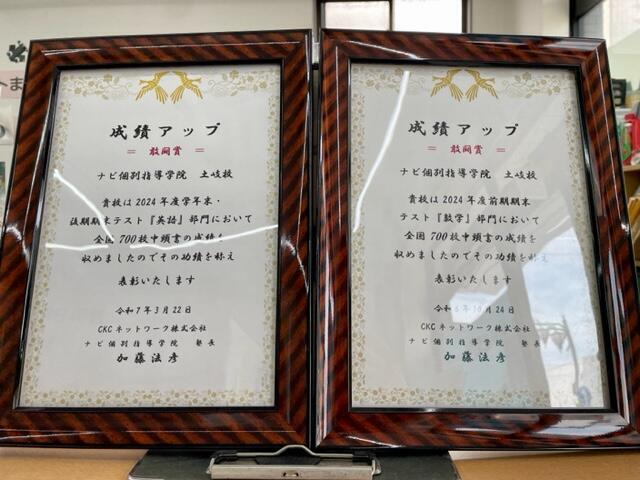 成績アップ
= 敢闘賞 =
ナビ個別指導学院　土岐校
貴校は2024年度学年末・
後期期末テスト『英語』部門において
全国700校中上位の成績を
収めましたのでその功績を称え
表彰いたします
令和7年3月22日
CKCネットワーク株式会社
ナビ個別指導学院　塾長
加藤法彦
成績アップ
= 敢闘賞 =
ナビ個別指導学院　土岐校
貴校は2024年度前期期末
テスト『数学』部門において
全国700校中
の成績を
収めましたのでその功績を称え
表彰いたします
令和6年10月24日
CKCネットワーク株式会社
ナビ個別指導学院　塾長
加藤法彦